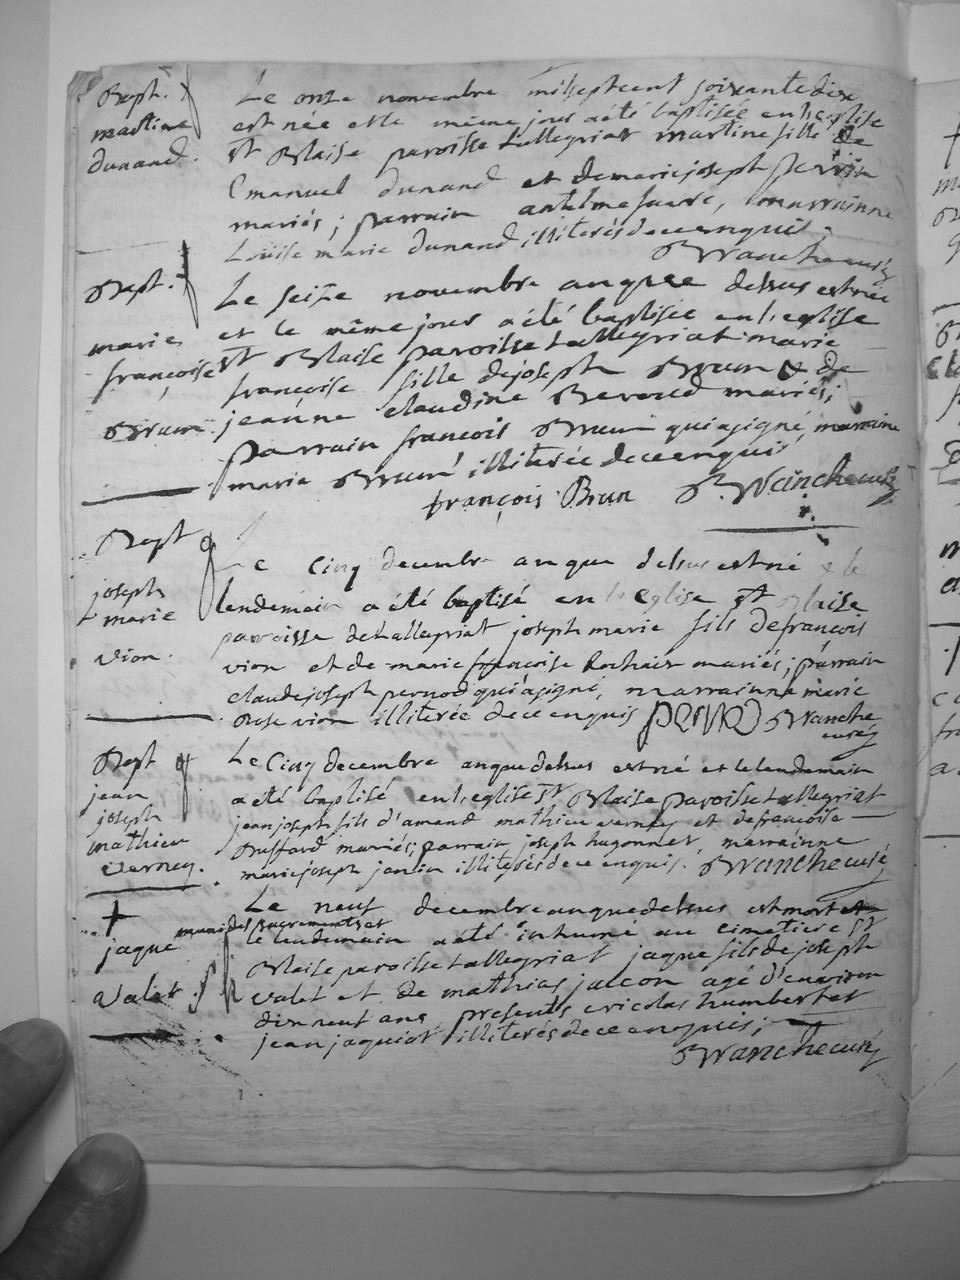 Bapt.
martine
dunand.
Le onze novembre mil sept cent soixante dix
est née et le même jour a été baptisée en l'eglise
st Blaise paroisse tallegriat martine fille de
Emanuel dunand et de marie joseph perrin
mariés; parrain antelme favre, marrainne
Louise marie dunand illiterés de ce enquis.
Branche curé
Bapt.
marie
françoise
Brun
Le seize novembre an que dessus est née
et le même jour a été baptisée en l'eglise
st Blaise paroisse tallegriat marie
françoise fille de joseph Brun & de
jeanne claudine Beroud mariés;
parrain françois Brun qui a signé, marraine
marie Brun illiterée de ce enquis
françois Brun Branche curé
Bapt
joseph
marie
vion.
Le cinq decembre an que dessus est né & le
lendemain a été baptisé en l'eglise st Blaise
paroisse de tallegriat joseph marie fils de françois
vion et de marie françoise Rochaix mariés; parrain
claude joseph pernod qui a signé, marrainne marie
Rose vion illiterée de ce enquis Branche
curé
Bapt
jean
joseph
mathieu
verney.
Le Cinq decembre an que dessus est né et le lendemain
a été baptisé en l'eglise st Blaise paroisse tallegriat
jean joseph fils d'amand mathieu verney et de françoise
Buffard mariés; parrain joseph hugonnet, marrainne
marie joseph janlin illiterés de ce enquis. Branche curé
jaque
valet
Le neuf decembre an que dessus est mort
muni des sacrements et
le lendemain a été inhumé au cimetiere st
Blaise paroisse tallegriat jaque fils de joseph
valet et de mathias agé d'environ
dix neuf ans, presents nicolas humbert et
jean jaquiot illiterés de ce enquis;
Branche curé